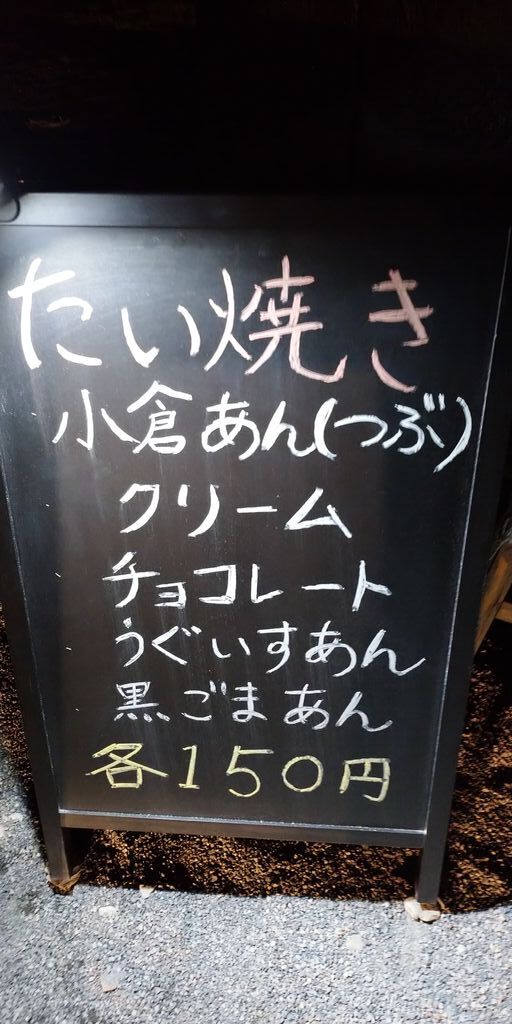 たい焼き
小倉あん(つぶ)
クリーム
チョコレート
うぐいすあん
黒ごまあん
各150円